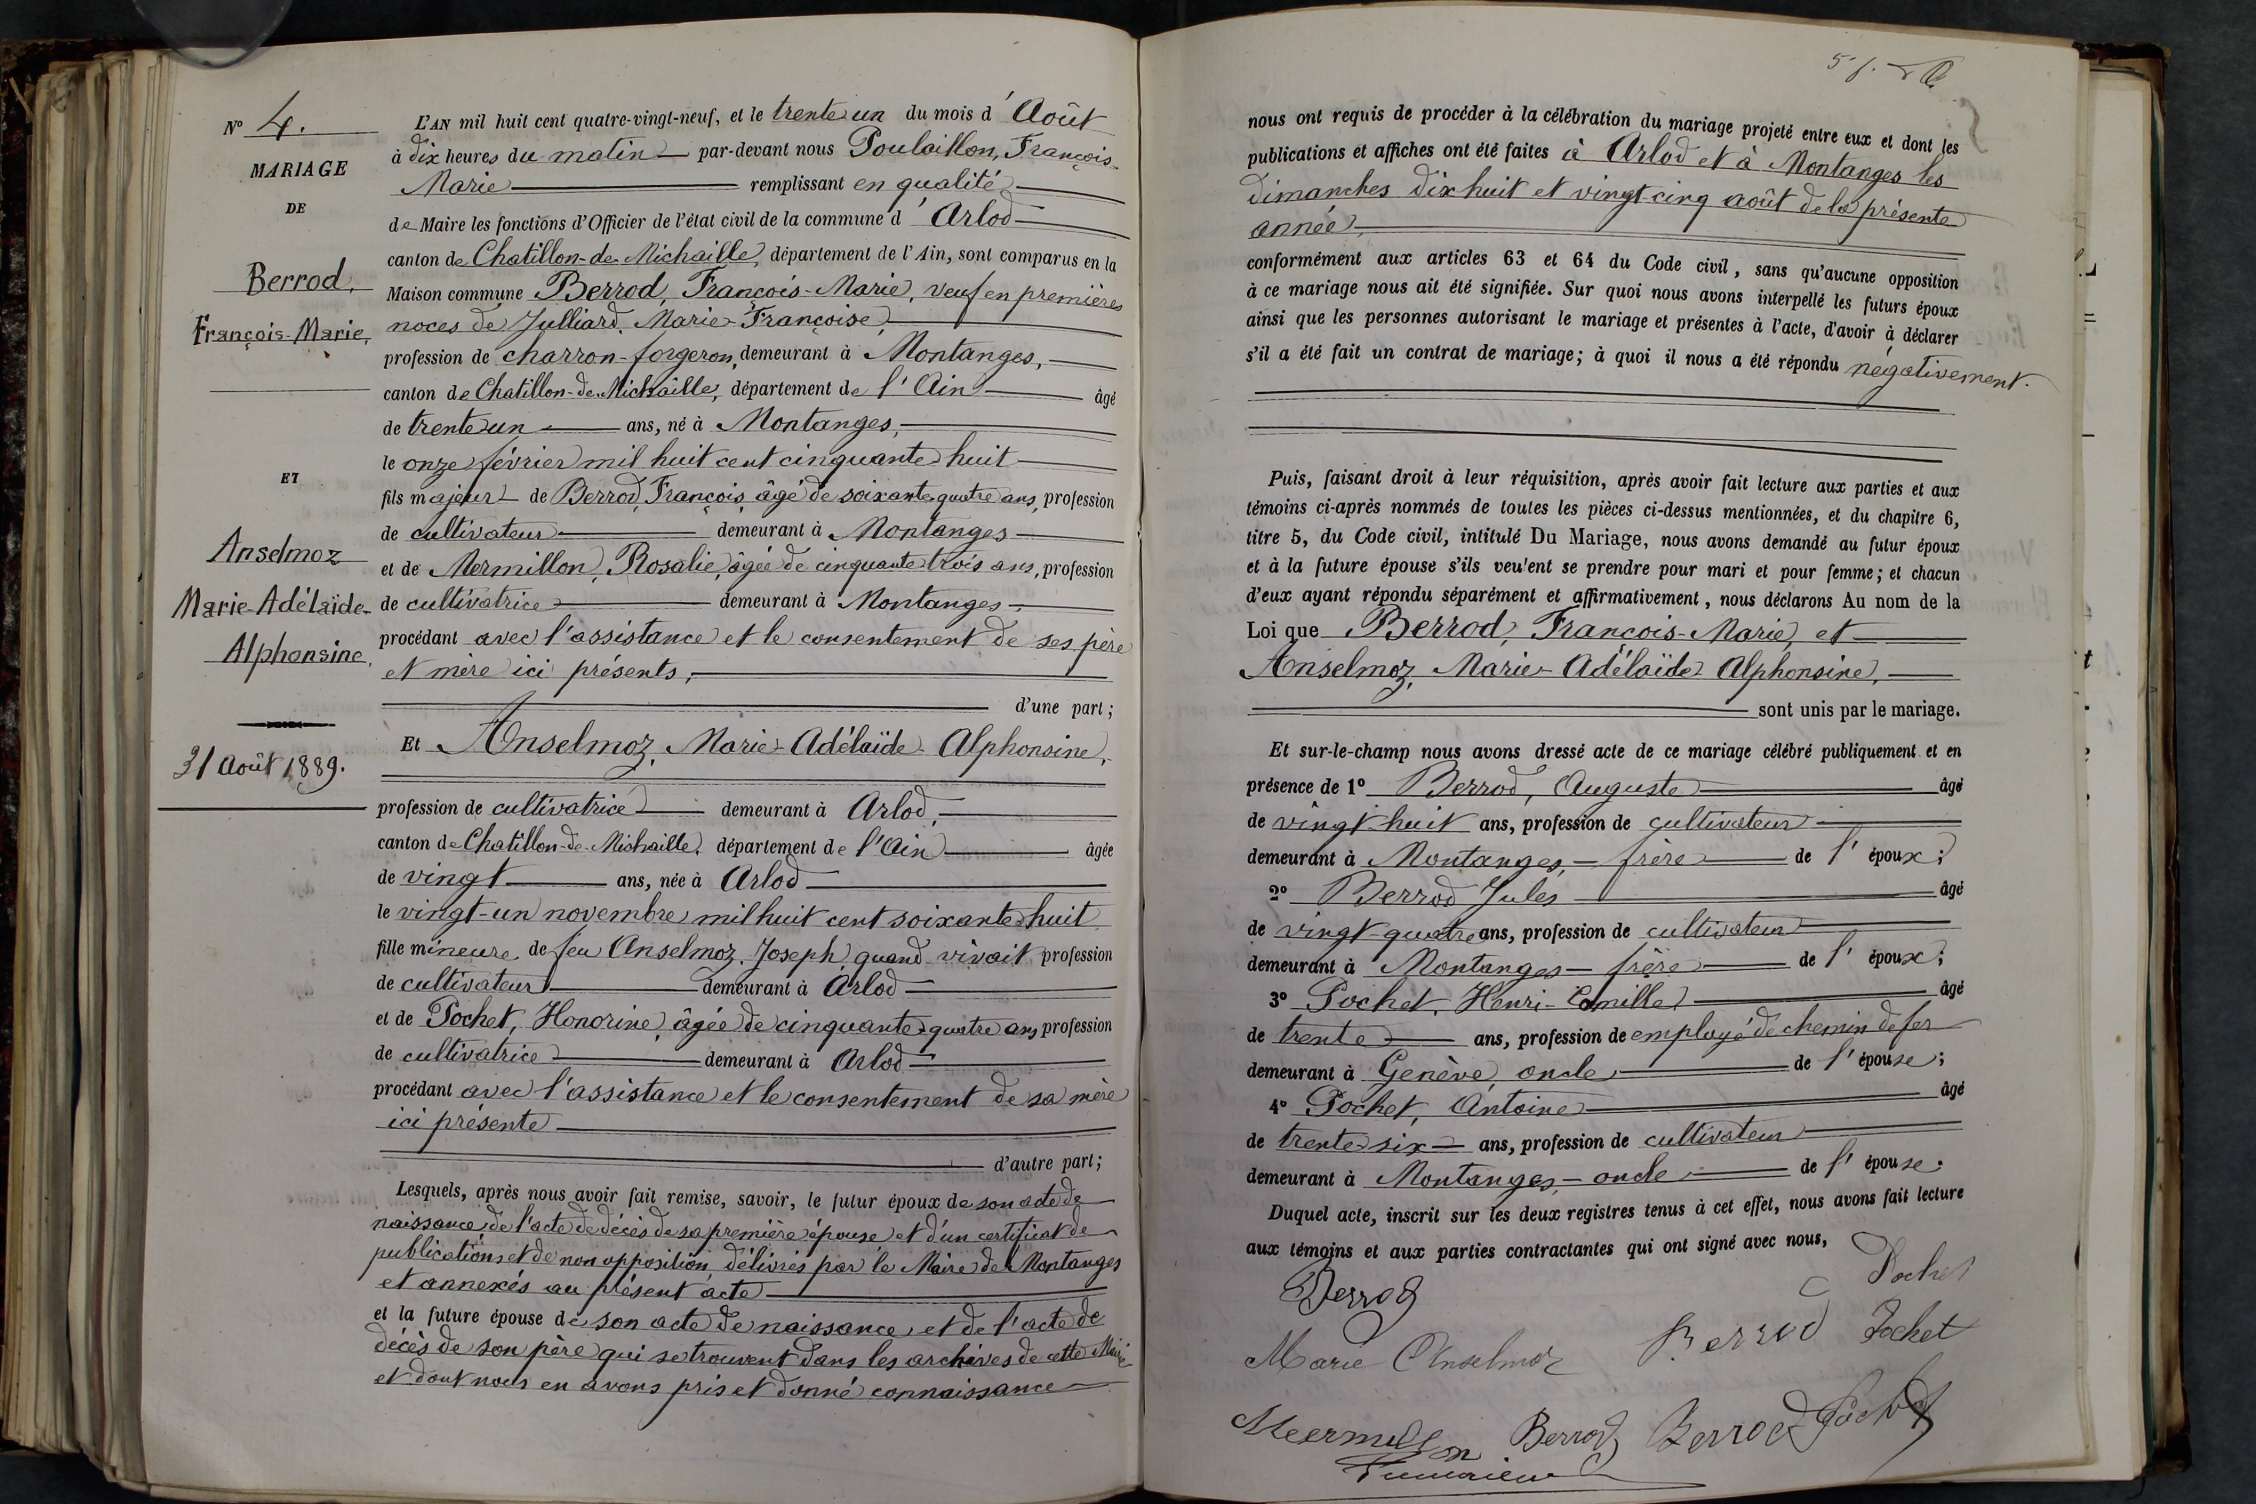 Nº 4.
MARIAGE
DE
Berrod,
François-Marie,
ET
Anselmoz
Marie-Adélaïde-
Alphonsine,
31 Août 1889.
L'AN mil huit cent quatre-vingt-neuf, et le trente un du mois d'Août
à dix heures du matin par-devant nous Poulaillon, François-
Marie remplissant en qualité
de Maire les fonctions d'Officier de l'état civil de la commune d'Arlod
canton de Chatillon-de-Michaille, département de l'Ain, sont comparus en la
Maison commune Berrod, François-Marie, veuf en premières
noces de Julliard, Marie-Françoise,
profession de charron-forgeron, demeurant à Montanges,
canton de Chatillon-de-Michaille, département de l'Ain âgé
de trente un ans, né à Montanges,
le onze février mil huit cent cinquante huit
fils majeur de Berrod, François, âgé de soixante quatre ans, profession
de cultivateur demeurant à Montanges
et de Mermillon, Rosalie, âgée de cinquante trois ans, profession
de cultivatrice demeurant à Montanges
procédant avec l'assistance et le consentement de ses père
et mère ici présents,
d'une part;
Et Anselmoz, Marie-Adélaïde-Alphonsine,
profession de cultivatrice demeurant à Arlod,
canton de Chatillon-de-Michaille, département de l'Ain âgée
de vingt ans, née à Arlod
le vingt-un novembre mil huit cent soixante huit
fille mineure de feu Anselmoz, Joseph quand vivait profession
de cultivateur demeurant à Arlod
et de Pochet, Honorine, âgée de cinquante quatre ans profession
de cultivatrice demeurant à Arlod
procédant avec l'assistance et le consentement de sa mère
ici présente
d'autre part;
Lesquels, après nous avoir fait remise, savoir, le futur époux de son acte de
naissance, de l'acte de décès de sa première épouse et d'un certificat de
publications et de non opposition délivrés par le Maire de Montanges
et annexés au présent acte
et la future épouse de son acte de naissance et de l'acte de
décès de son père qui se trouvent dans les archives de cette Mairie
et dont nous en avons pris et donné connaissance
nous ont requis de procéder à la célébration du mariage projeté entre eux et dont les
publications et affiches ont été faites à Arlod et à Montanges les
dimanches dix huit et vingt-cinq août de la présente
année,
conformément aux articles 63 et 64 du Code civil, sans qu'aucune opposition
à ce mariage nous ait été signifiée. Sur quoi nous avons interpellé les futurs époux
ainsi que les personnes autorisant le mariage et présentes à l'acte, d'avoir à déclarer
s'il a été fait un contrat de mariage; à quoi il nous a été répondu négativement.
Puis, faisant droit à leur réquisition, après avoir fait lecture aux parties et aux
témoins ci-après nommés de toutes les pièces ci-dessus mentionnées, et du chapitre 6,
titre 5, du Code civil, intitulé Du Mariage, nous avons demandé au futur époux
et à la future épouse s'ils veulent se prendre pour mari et pour femme; et chacun
d'eux ayant répondu séparément et affirmativement, nous déclarons Au nom de la
Loi que Berrod, François-Marie, et
Anselmoz, Marie-Adélaïde-Alphonsine,
sont unis par le mariage.
Et sur-le-champ nous avons dressé acte de ce mariage célébré publiquement et en
présence de 1º Berrod, Auguste âgé
de vingt huit ans, profession de cultivateur
demeurant à Montanges, frère de l'époux;
2º Berrod Jules âgé
de vingt-quatre ans, profession de cultivateur
demeurant à Montanges frère de l'époux;
3º Pochet, Henri-Camille âgé
de trente ans, profession de employé de chemin de fer
demeurant à Genève, oncle de l'épouse;
4º Pochet, Antoine âgé
de trente six ans, profession de cultivateur
demeurant à Montanges, oncle de l'épouse.
Duquel acte, inscrit sur les deux registres tenus à cet effet, nous avons fait lecture
aux témoins et aux parties contractantes qui ont signé avec nous,
Berrod Pochet
Marie Anselmoz Berrod Pochet
Mermillon Berrod Berrod Pochet